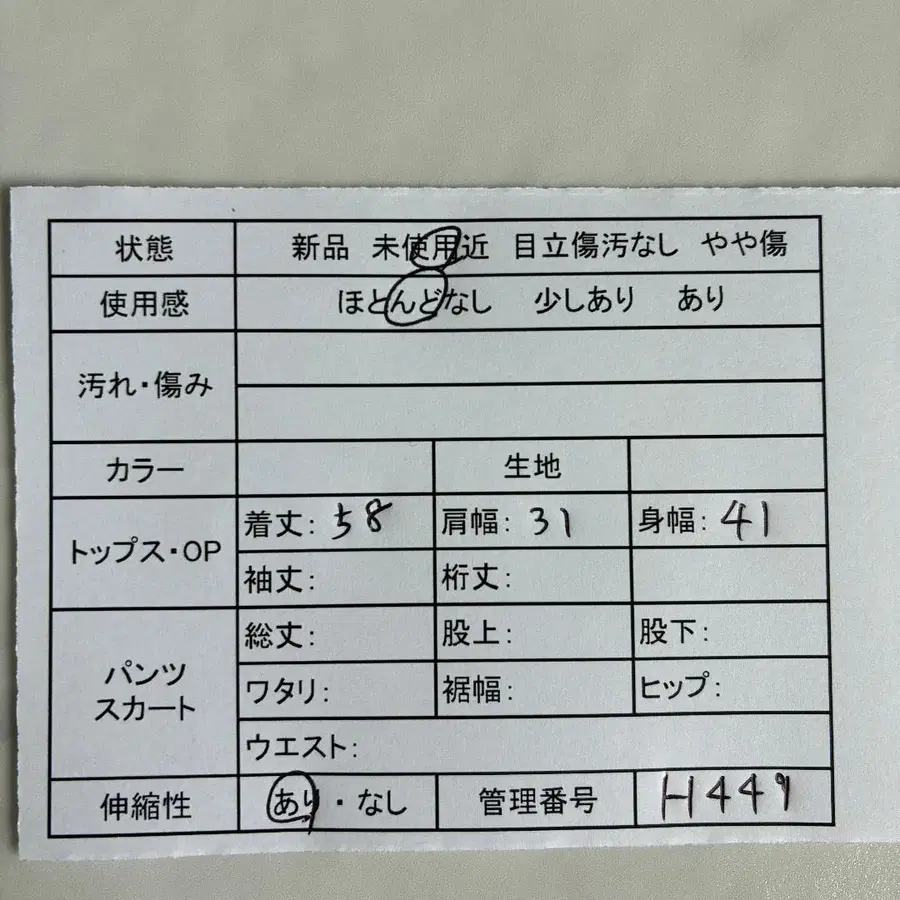 状態 新品 未使用近 目立傷汚なし やや傷
使用感 ほとんどなし 少しあり あり
汚れ・傷み
カラー 生地
トップス・OP 着丈: 58 肩幅: 31 身幅: 41
袖丈: 裄丈:
パンツ
スカート
総丈: 股上: 股下:
ワタリ: 裾幅: ヒップ:
ウエスト:
伸縮性 あり・なし 管理番号 H449